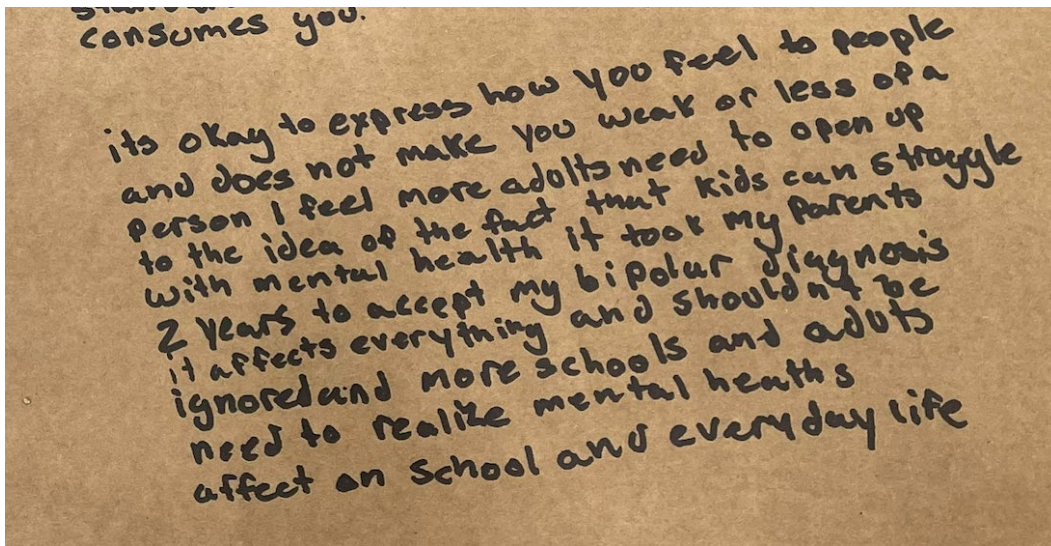 consumes you.
its okay to express how you feel to people
and does not make you weak or less of a
person I feel more adults need to open up
to the idea of the fact that kids can struggle
with mental health it took my parents
2 years to accept my bipolar diagnosis
it affects everything and shouldn't be
ignored and more schools and aduts
need to realize mental heaths
affect on school and everyday life